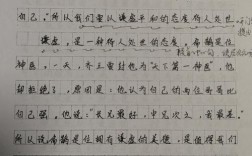 自己。"所以我们要以谦虚平和的态度待人处世
谦虚,是一种待人处世的态度。扁鹊是位
神医,一天,齐王曾封他为"天下第一神医",他
却拒绝了,原因是:他认为自己的两位哥哥比
自己强。他说:"长兄最好,中兄次之,我最差。"
所以说扁鹊是位拥有谦虚的美德,是值得我们